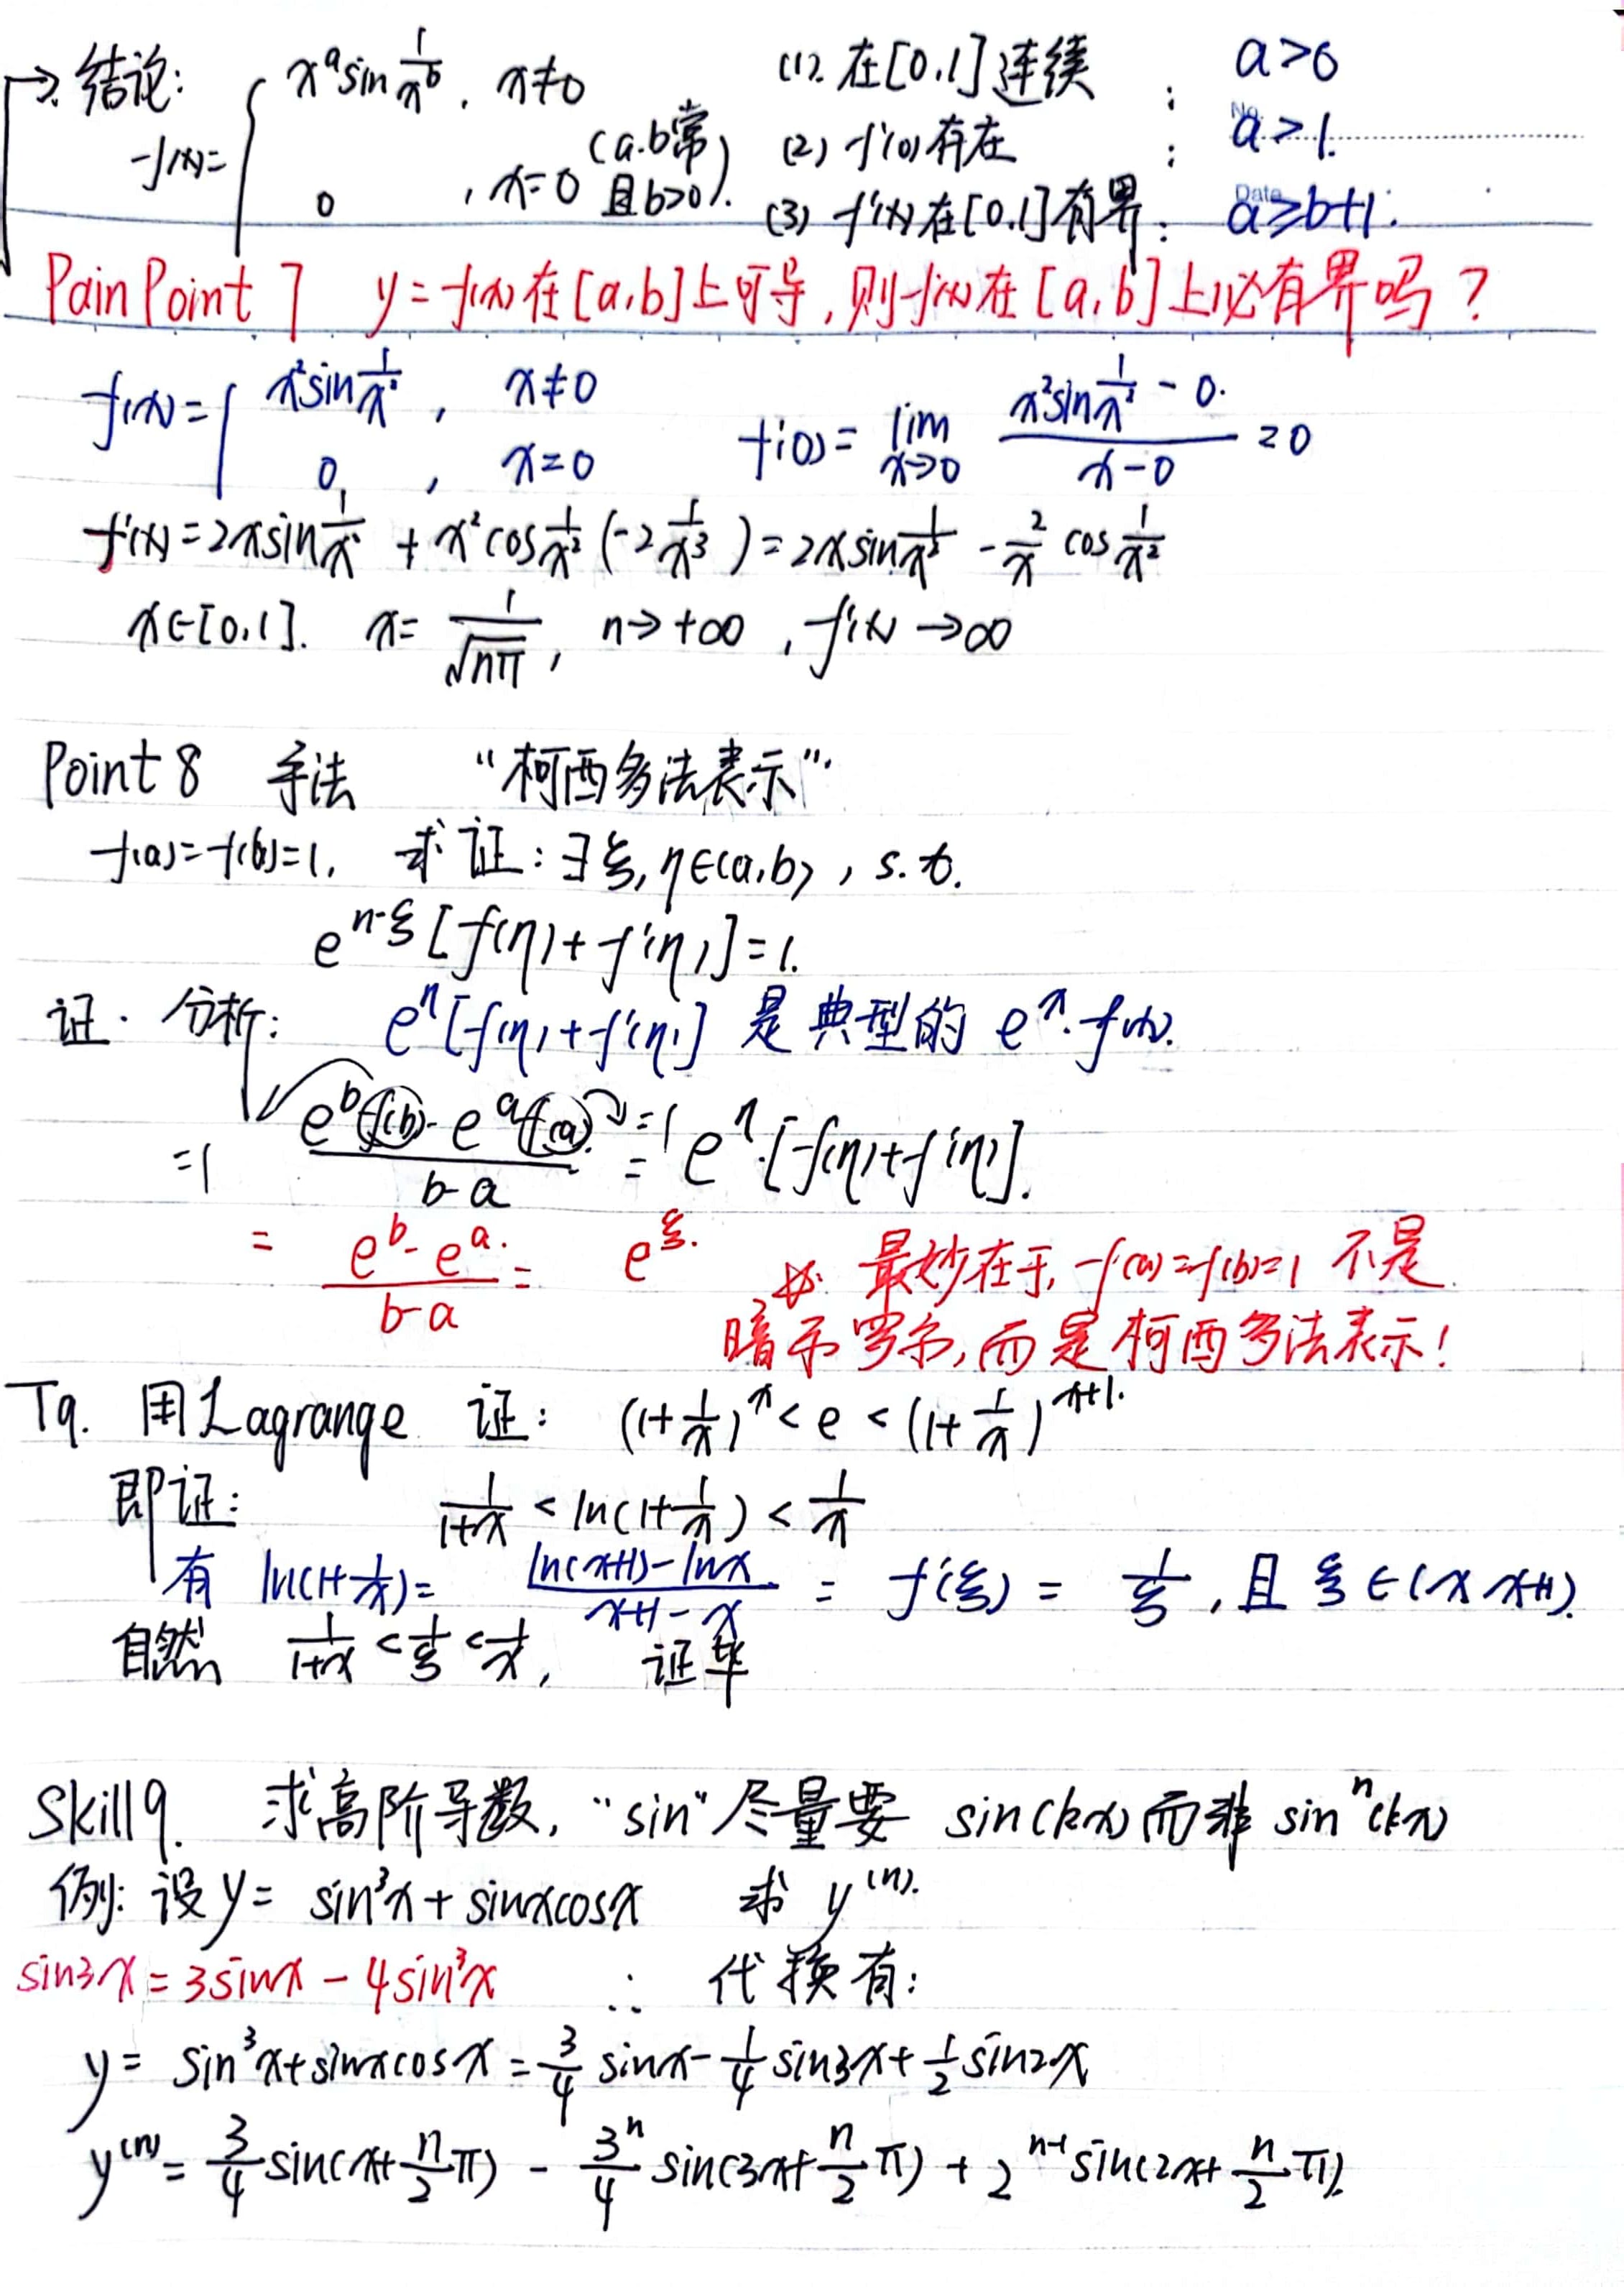 → 结论: f(x)= { x^a sin 1/x^b , x≠0
0 , x=0 (a.b常 且b>0).
(1). 在[0,1]连续 ; a>0
(2) f'(0)存在 ; a>1.
(3) f'(x)在[0,1]有界: a≥b+1.
No.
Date
Pain Point 7 y=f(x)在[a,b]上可导,则f'(x)在[a,b]上必有界吗?
f(x)= { x²sin 1/x² , x≠0
0 , x=0
f'(0)= lim x→0 (x²sin 1/x² - 0)/(x-0) =0
f'(x)=2xsin 1/x² + x²cos 1/x² (-2 1/x³) = 2xsin 1/x² - 2/x cos 1/x²
x∈[0,1]. x= 1/√(nπ), n→+∞, f'(x)→∞
Point 8 手法 “柯西多法表示”.
f(a)=f(b)=1, 求证: ∃ξ,η∈(a,b), s.t.
e^(η-ξ) [f(η)+f'(η)]=1.
证. 分析: e^η[f(η)+f'(η)] 是典型的 e^x·f(x).
=1 (e^b f(b) - e^a f(a))/(b-a) =1 = e^η·[f(η)+f'(η)].
= (e^b - e^a)/(b-a) = e^ξ.
※ 最妙在于, f(a)=f(b)=1 不是
暗示罗尔,而是柯西多法表示!
T9. 用Lagrange 证: (1+1/x)^x < e < (1+1/x)^(x+1).
即证: 1/(1+x) < ln(1+1/x) < 1/x
有 ln(1+1/x)= (ln(x+1)-lnx)/(x+1-x) = f'(ξ) = 1/ξ, 且 ξ∈(x x+1).
自然 1/(1+x) < 1/ξ < 1/x, 证毕
Skill 9. 求高阶导数, “sin”尽量要 sin(kx)而非 sin^n(kx)
例: 设y= sin³x+sinxcosx 求 y^(n).
sin3x=3sinx-4sin³x ∴ 代换有:
y= sin³x+sinxcosx = 3/4 sinx - 1/4 sin3x + 1/2 sin2x
y^(n) = 3/4 sin(x+n/2 π) - 3^n/4 sin(3x+n/2 π) + 2^(n-1) sin(2x+n/2 π).